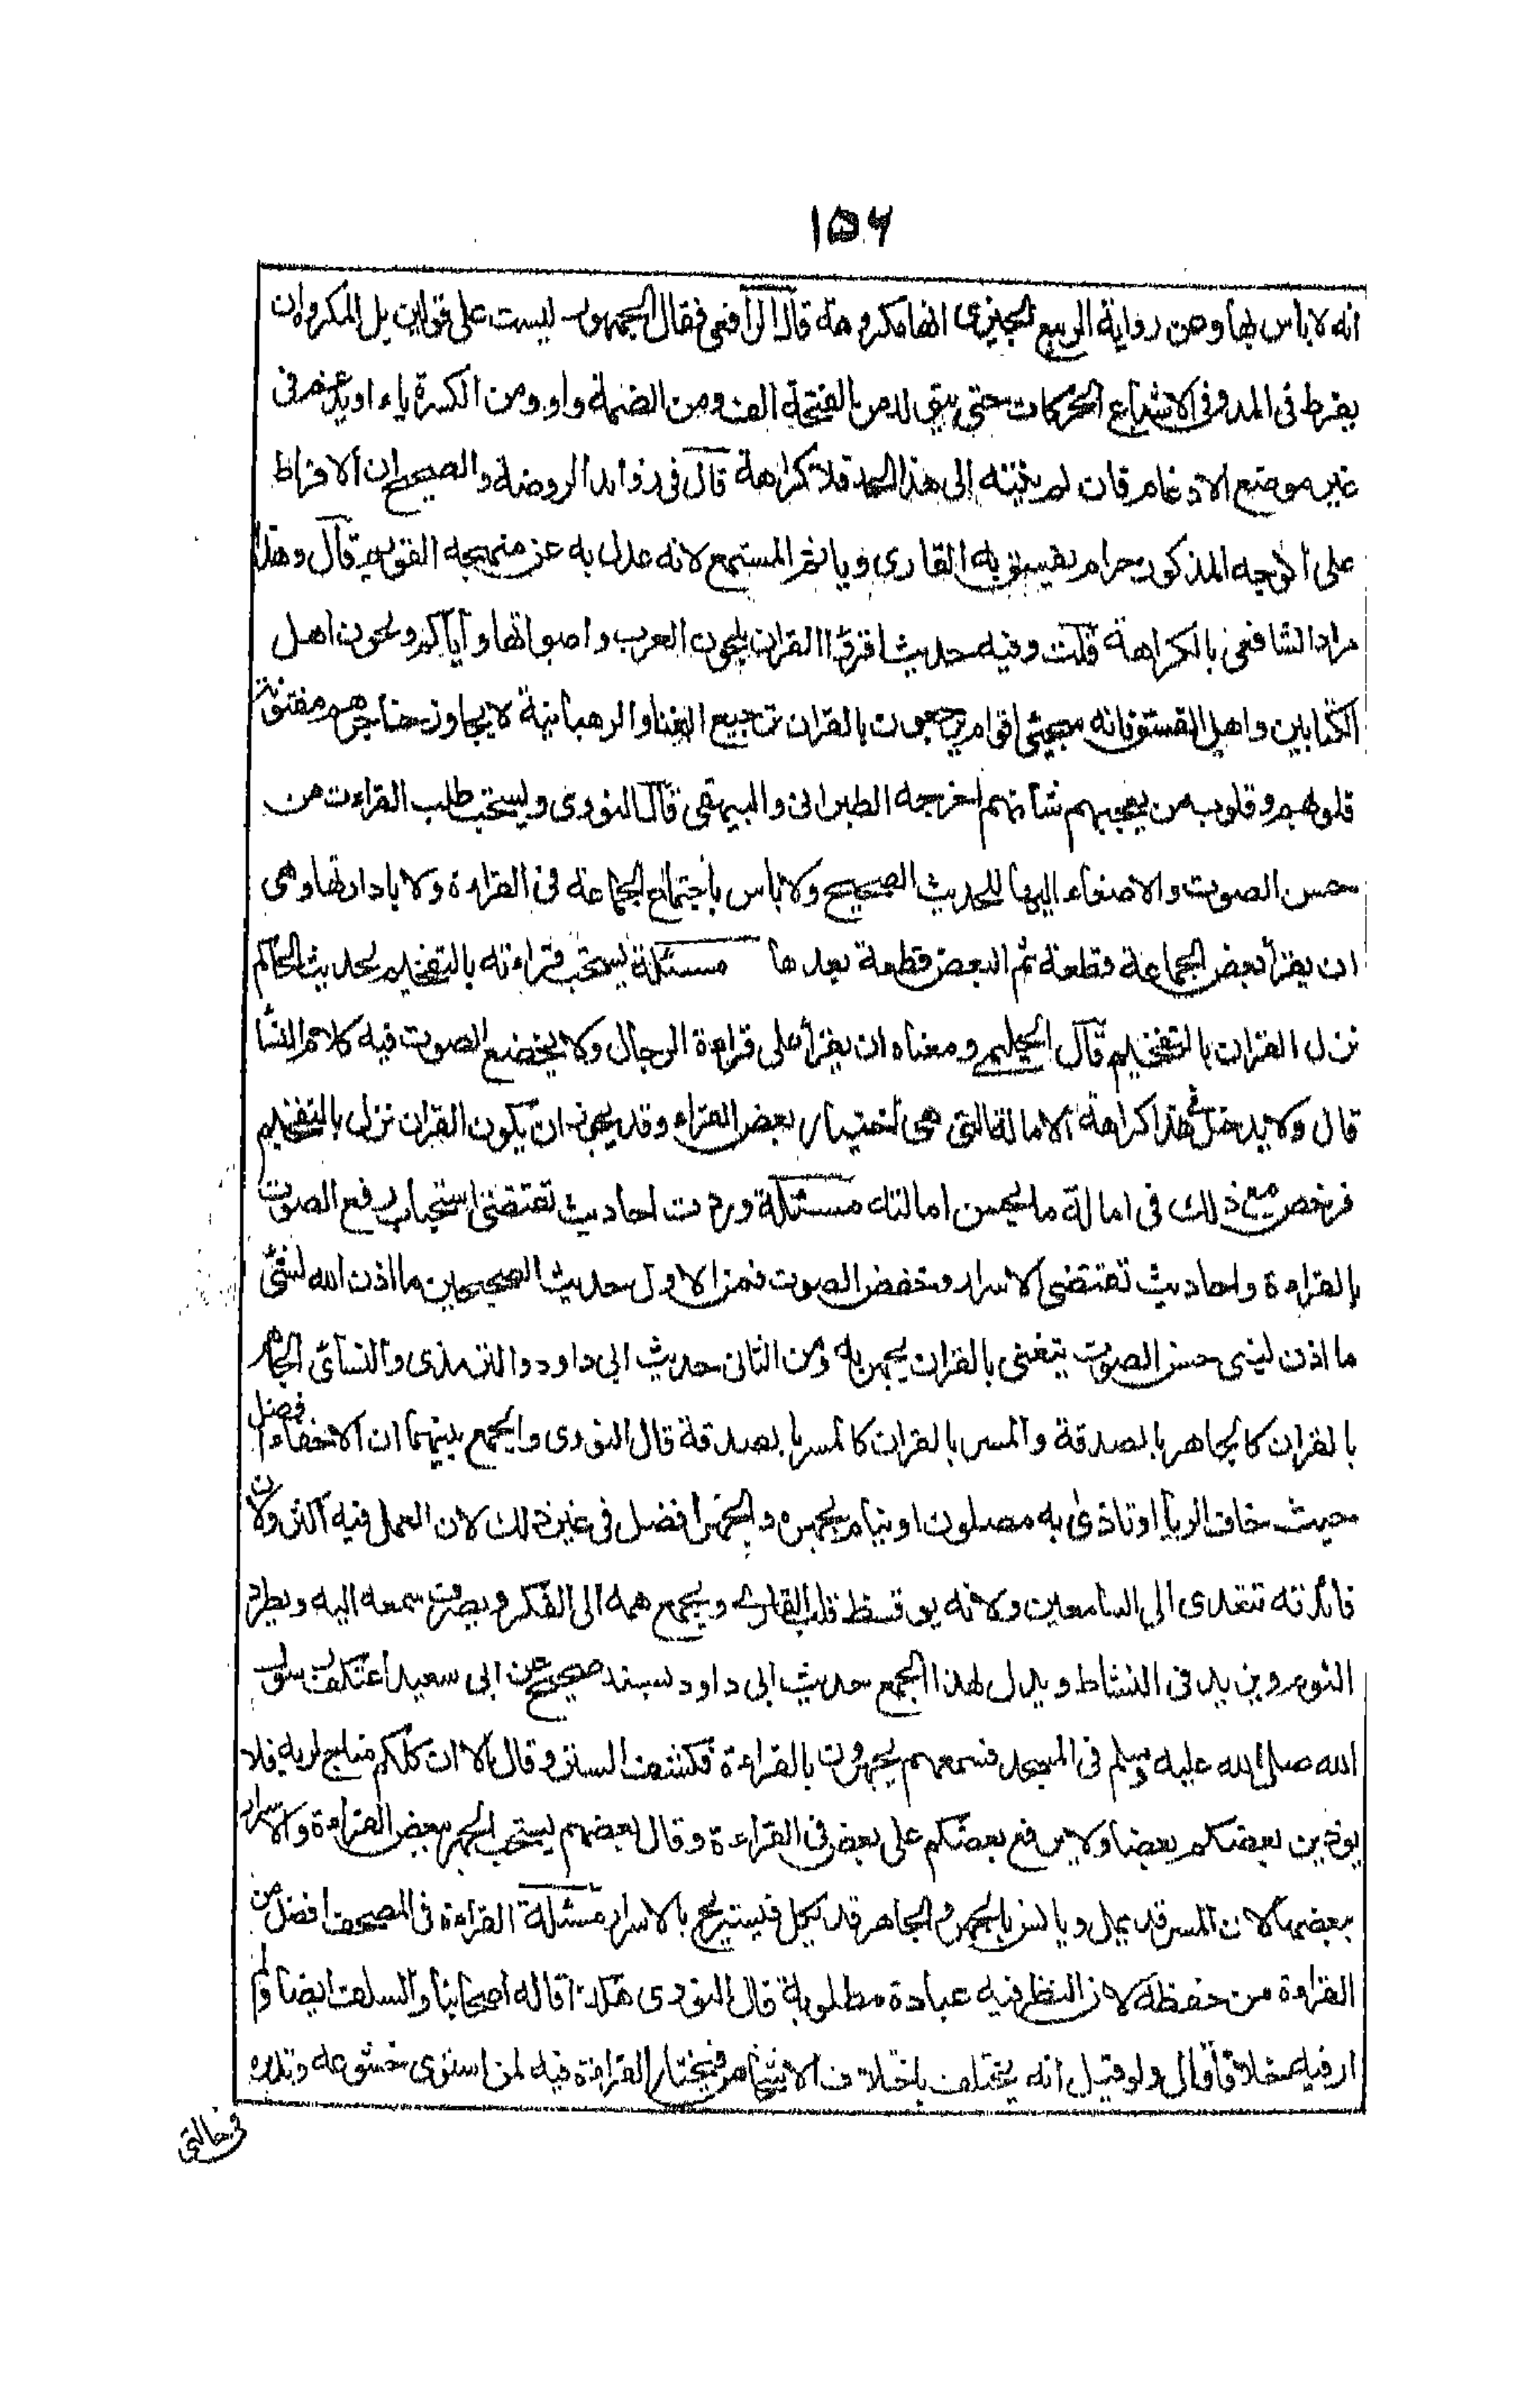 ١٥٦
انه لا باس بها وعن رواية الربيع الجيزى انها مكروهة قال الرافعى فقال الجمهور ليست على قولين بل المكروه ان
يفرط فى المد وفى الاشباع الحركات حتى يتولد من الفتحة الف ومن الضمة واو ومن الكسرة ياء او يدغم فى
غير موضع الادغام فان لم ينته الى هذا الحد فلا كراهة قال فى زوائد الروضة والصحيح ان الافراط
على الوجه المذكور حرام يفسق به القارى ويأثم المستمع لانه عدل به عن منهجه القويم قال وهذا
مراد الشافعى بالكراهة قلت وفيه حديث اقرؤا القران بلحون العرب واصواتها واياكم ولحون اهل
الكتابين واهل الفسق فانه سيجئ اقوام يرجعون بالقران ترجيع الغنا والرهبانية لا يجاوز حناجرهم مفتونة
قلوبهم وقلوب من يعجبهم شأنهم اخرجه الطبرانى والبيهقى قال النووى ويستحب طلب القراءة من
حسن الصوت والاصغاء اليها للحديث الصحيح ولا باس باجتماع الجماعة فى القراءة ولا بادارتها وهى
ان يقرأ بعض الجماعة قطعة ثم البعض قطعة بعدها مسئلة يستحب قراءته بالتفخيم لحديث الحاكم
نزل القران بالتفخيم قال الحليمى ومعناه ان يقرأ على قراءة الرجال ولا يخضع الصوت فيه ككلام النسا
قال ولا يدخل فى هذا كراهة الامالة التى هى اختيار بعض القراء وقد يجوز ان يكون القران نزل بالتفخيم
فرخص مع ذلك فى امالة ما يحسن امالته مسئلة وردت احاديث تقتضى استحباب رفع الصوت
بالقراءة واحاديث تقتضى الاسرار وخفض الصوت فمن الاول حديث الصحيحين ما اذن الله لشئ
ما اذن لنبى حسن الصوت يتغنى بالقران يجهر به ومن الثانى حديث ابى داود والترمذى والنسائى الجاهر
بالقران كالجاهر بالصدقة والمسر بالقران كالمسر بالصدقة قال النووى والجمع بينهما ان الاخفاء افضل
حيث خاف الريا او تاذى به مصلون او نيام بجهره والجهر افضل فى غير ذلك لان العمل فيه اكثر ولان
فائدته تتعدى الى السامعين ولانه يوقظ قلب القارى ويجمع همه الى الفكر ويصرف سمعه اليه ويطرد
النوم ويزيد فى النشاط ويدل لهذا الجمع حديث ابى داود بسند صحيح عن ابى سعيد اعتكف رسول
الله صلى الله عليه وسلم فى المسجد فسمعهم يجهرون بالقراءة فكشف الستر وقال الا ان كلكم مناج لربه فلا
يوذين بعضكم بعضا ولا يرفع بعضكم على بعض فى القراءة وقال بعضهم يستحب الجهر ببعض القراءة والاسرار
ببعضها لان المسر قد يمل ويانس بالجهر والجاهر قد يكل فيستريح بالاسرار مسئلة القراءة فى المصحف افضل من
القراءة من حفظه لان النظر فيه عبادة مطلوبة قال النووى هكذا قاله اصحابنا والسلف ايضا ولم
ار فيه خلافا قال ولو قيل انه يختلف باختلاف الاشخاص فيختار القراءة فيه لمن استوى خشوعه وتدبره
فى حالتى